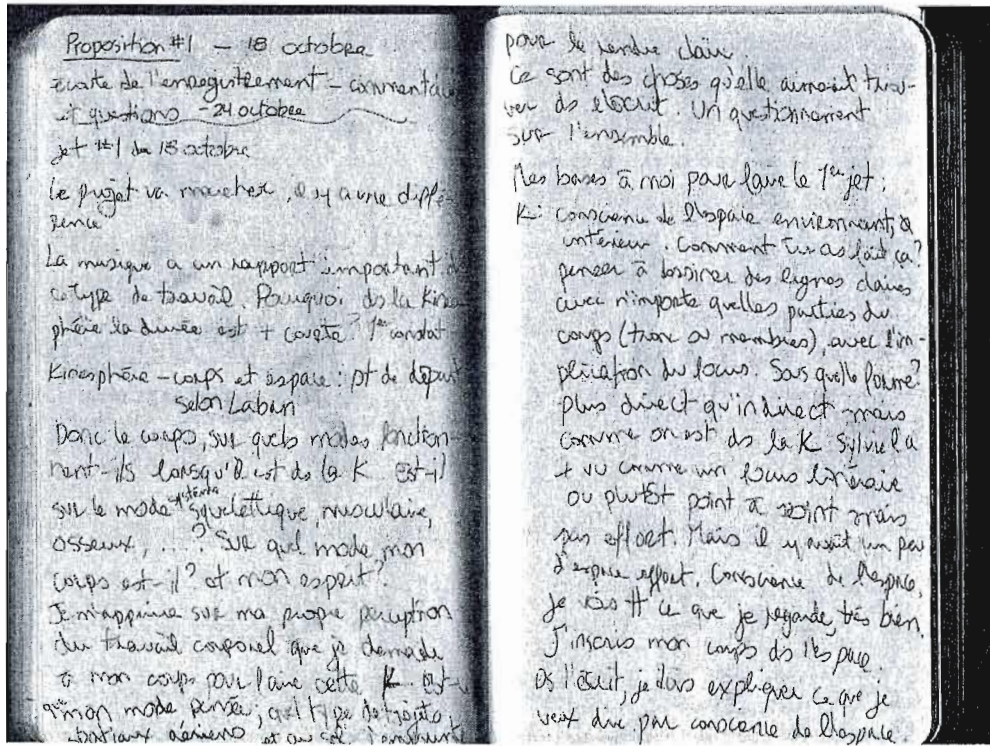 Proposition #1 – 18 octobre
écoute de l'enregistrement – commentaires
et questions – 24 octobre
jet #1 du 18 octobre
Le projet va marcher, il y a une diffé-
rence
La musique a un rapport important ds
ce type de travail. Pourquoi ds la Kine
phère la durée est + courte? 1er constat
Kinesphère – corps et espace : pt de départ
selon Laban
Donc le corps, sur quels modes fonction-
nent-ils lorsqu'il est ds la K est-il
sur le mode système squelettique, musculaire,
osseux, ...? Sur quel mode mon
corps est-il? et mon esprit?
Je m'appuie sur ma propre perception
du travail corporel que je demande
à mon corps pour faire cette K. est-
mon mode pensée; quel type de trajets
spatiaux aériens et au sol. J'emprunte
pour le rendre clair
Ce sont des choses qu'elle aimerait trou-
ver ds l'écrit. Un questionnement
sur l'ensemble.
Mes bases à moi pour faire le 1er jet :
K : conscience de l'espace environnant, &
intérieur. Comment tu as fait ça?
penser à dessiner des lignes claires
avec n'importe quelles parties du
corps (tronc ou membres), avec l'im-
plication du focus. Sous quelle forme?
plus direct qu'indirect mais
comme on est ds la K Sylvie l'a
+ vu comme un focus linéaire
ou plutôt point à point mais
pas effort. Mais il y avait un peu
d'espace effort. Conscience de l'espace,
je vois tt ce que je regarde, très bien.
J'inscris mon corps ds l'espace.
Ds l'écrit, je dois expliquer ce que je
veux dire par conscience de l'espace.